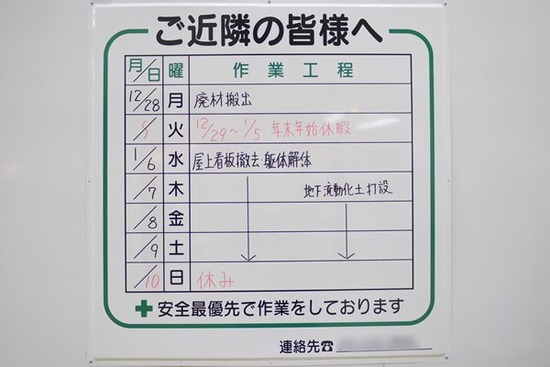 ご近隣の皆様へ
月/日 曜 作業工程
12/28 月 廃材搬出
火 12/29～1/5 年末年始休暇
1/6 水 屋上看板撤去・躯体解体
/7 木 地下流動化土打設
/8 金
/9 土
/10 日 休み
安全最優先で作業をしております
連絡先☎